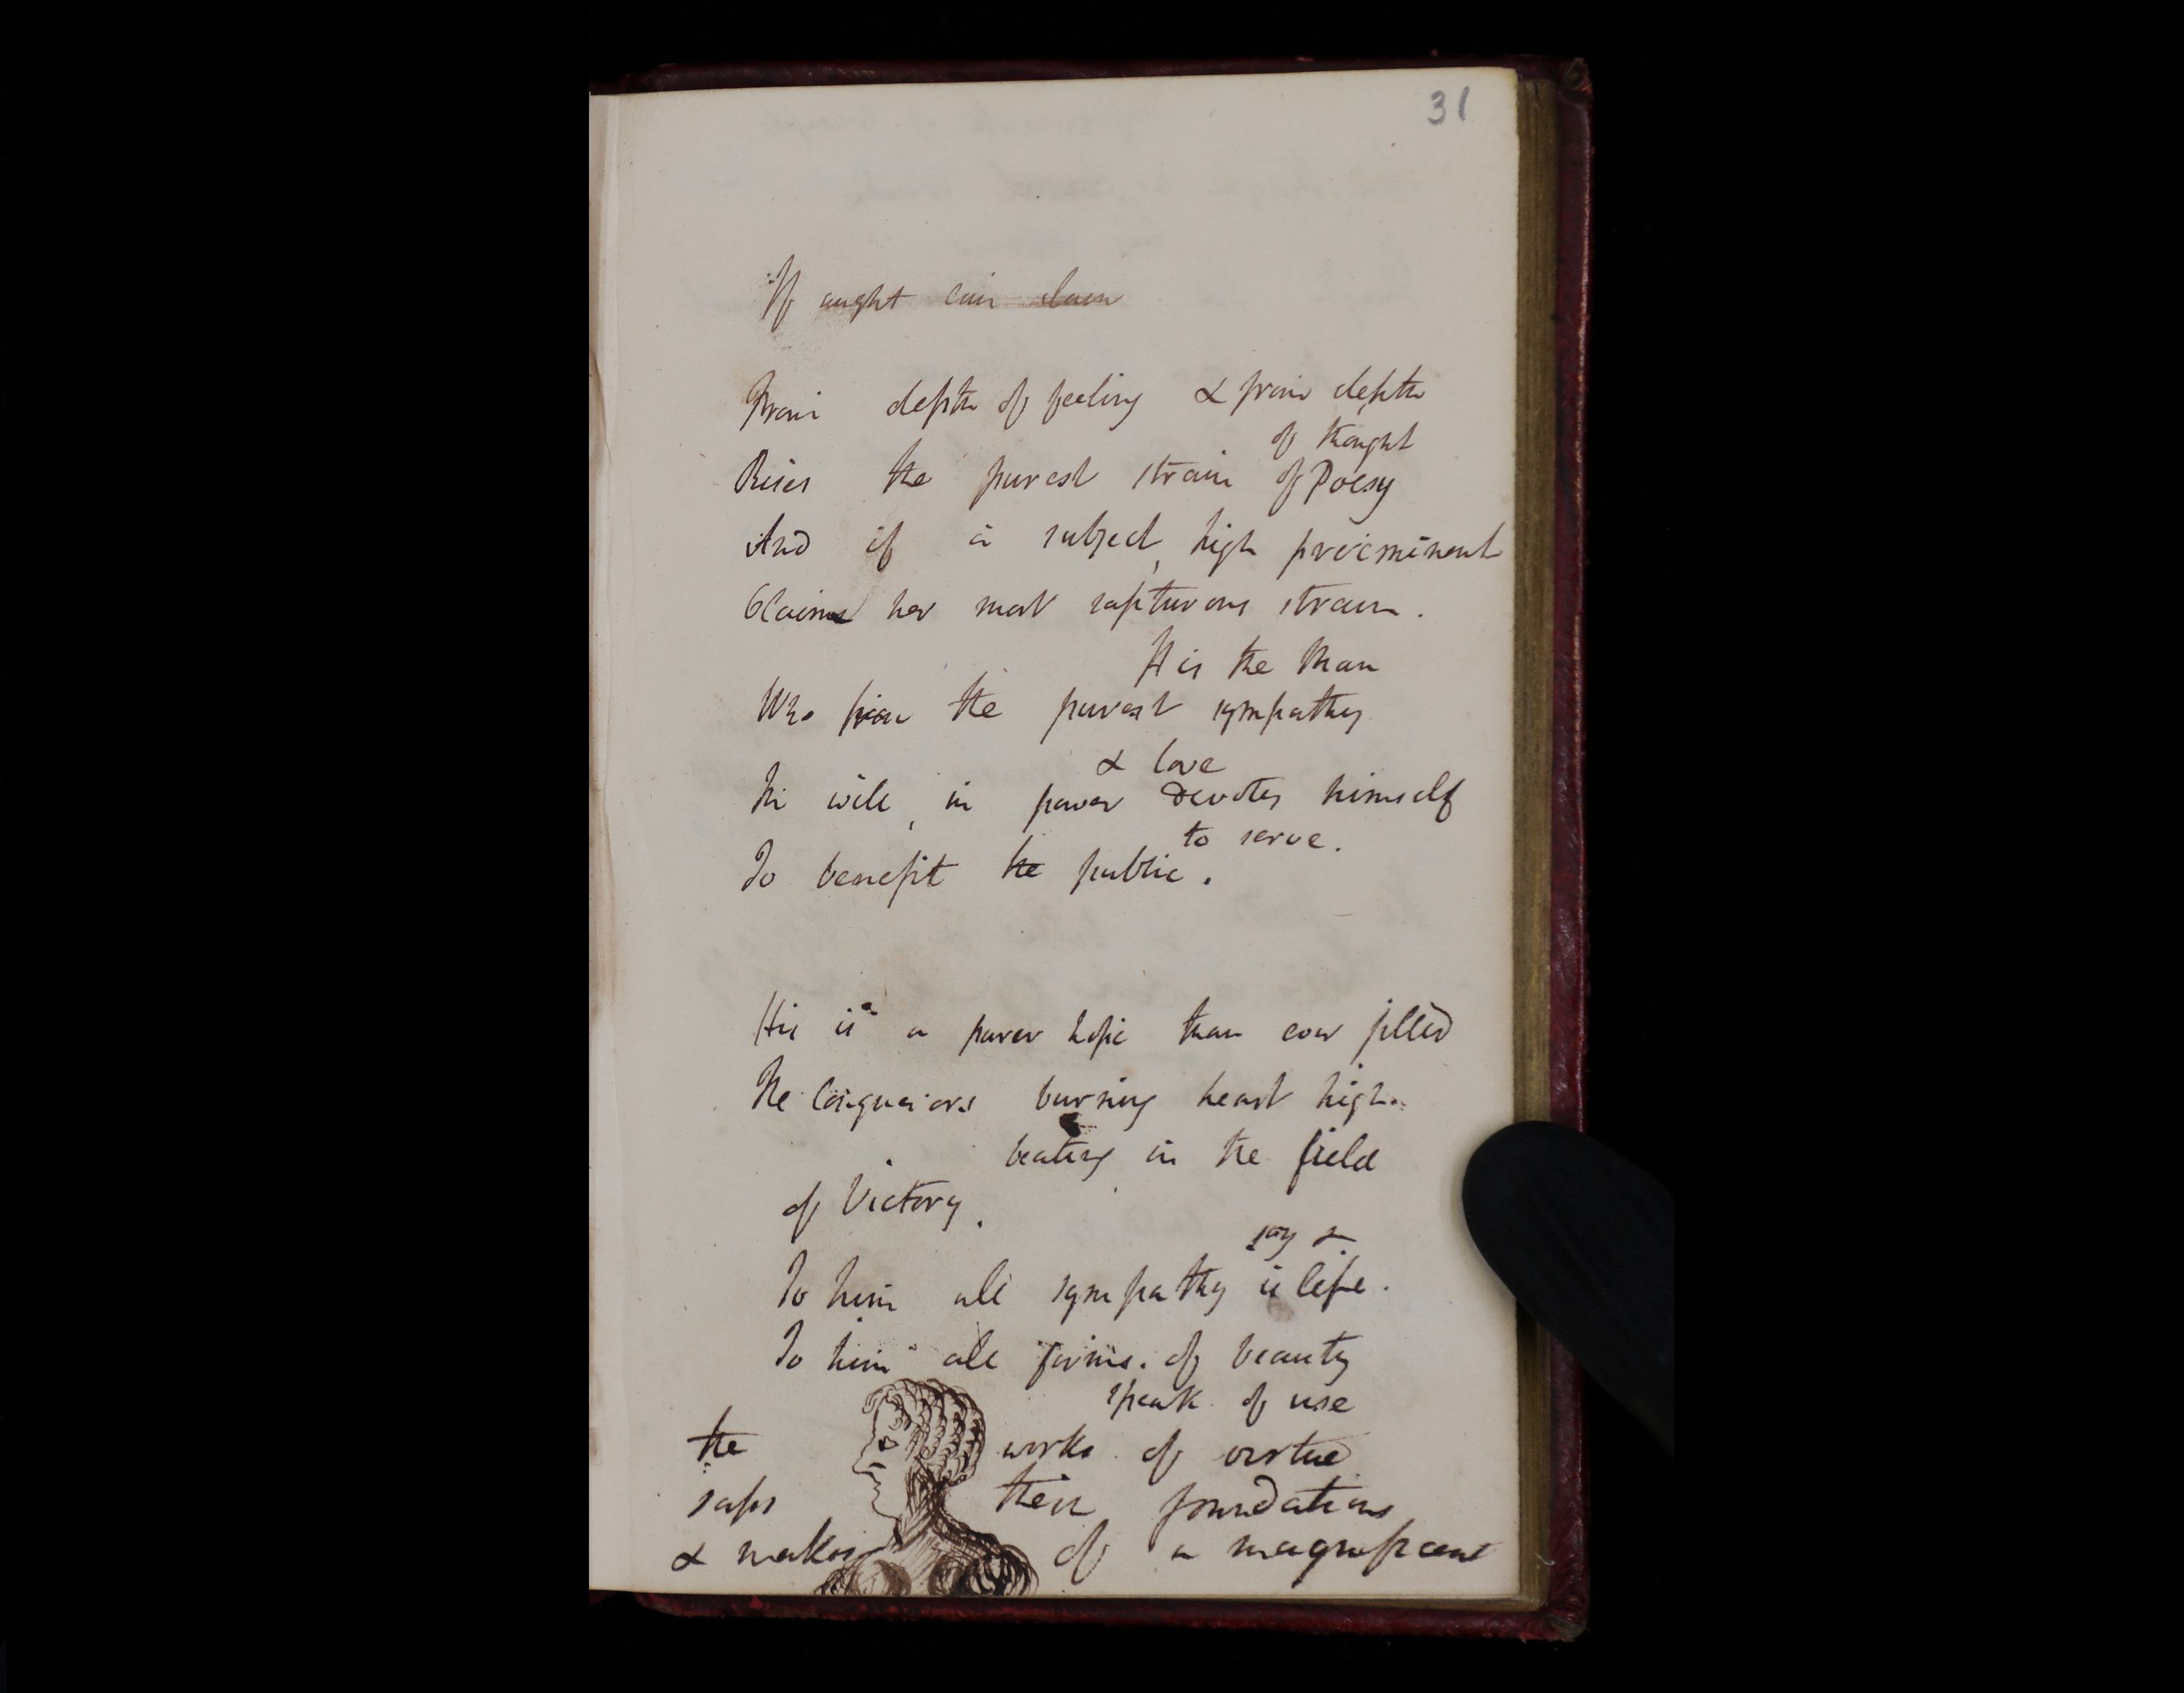 31
If aught can claim
From depth of feeling & from depth
of thought
Rises the purest strain of Poesy
And if a subject, high preeminent
Claims her most rapturous strain.
It is the Man
Who from the purest sympathy
& love
In will, in power devotes himself
to serve.
To benefit the public.
His is a purer hope than ear filled
The Conquerors burning heart high
beating in the field
of Victory.
joy &
To him all sympathy is life.
To him all forms of beauty
speak of use
the works of virtue
saps their foundations
& makes of a magnificent